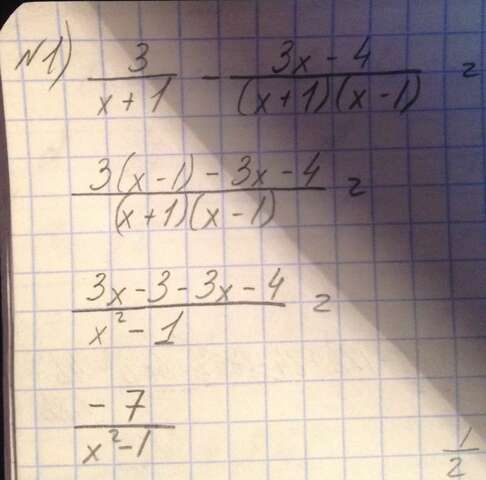 N1) 3/(x+1) - (3x-4)/((x+1)(x-1)) =
(3(x-1) - 3x - 4)/((x+1)(x-1)) =
(3x-3-3x-4)/(x²-1) =
-7/(x²-1)
1/2